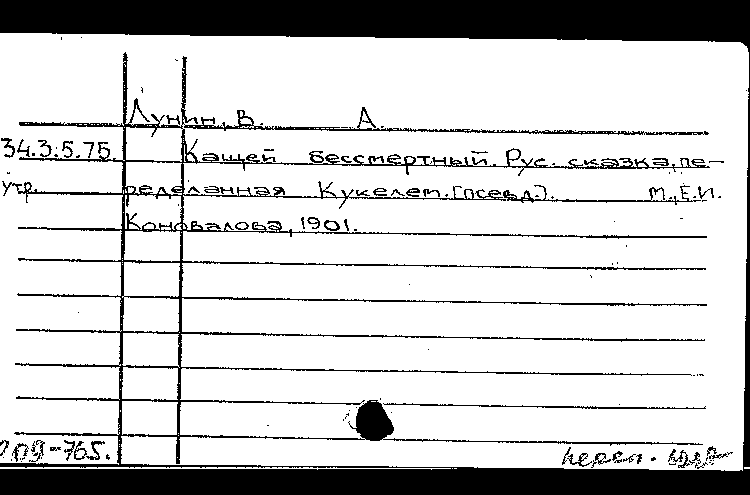 Лунин, В. А.
34.3.5.75. Кащей бессмертный. Рус. сказка, пе-
утр. ределанная Кукелем. [псевд.]. М., Е.И.
Коновалова, 1901.
09-765. перепл.